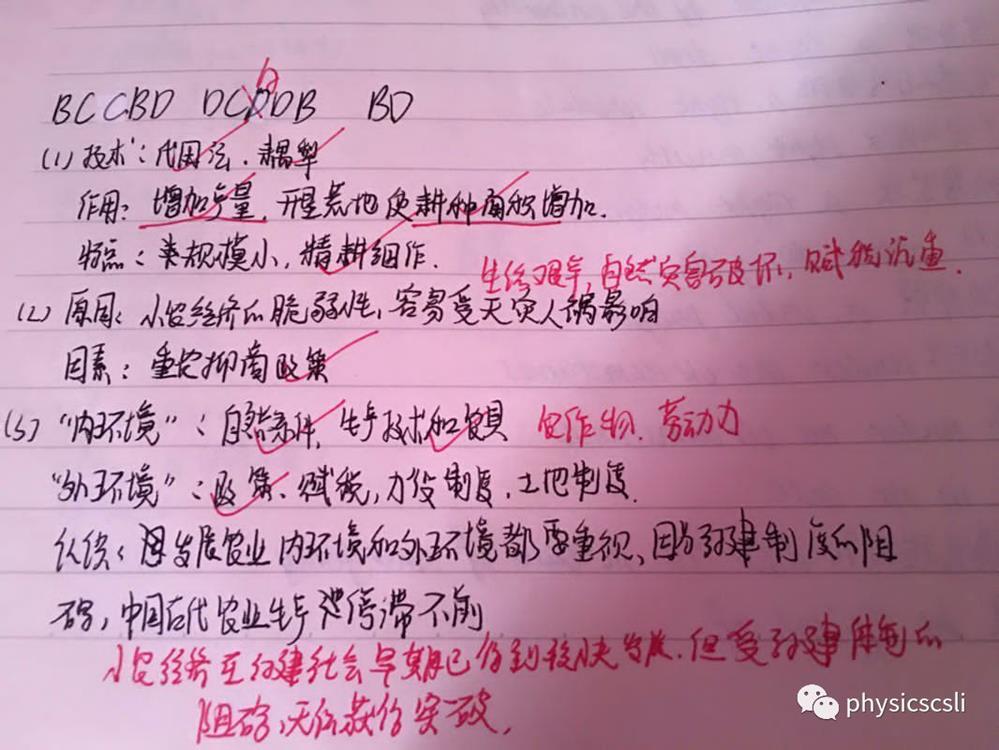 BCCBD DCDDB BD
B
(1) 技术：代田法、耦犁
作用：增加产量，开垦荒地使耕种面积增加.
特点：类规模小，精耕细作.
生活艰辛，自然灾害破坏，赋税沉重.
(2) 原因：小农经济的脆弱性，容易受天灾人祸影响
因素：重农抑商政策
(3) “内环境”：自然条件，生产技术和农具 农作物、劳动力
“外环境”：政策、赋税，力役制度，土地制度.
认识：发展农业内环境和外环境都要重视，因为封建制度的阻
碍，中国古代农业生产停滞不前
小农经济在封建社会早期已得到较快发展.但受封建体制的
阻碍，无法获得突破.
physicscsli